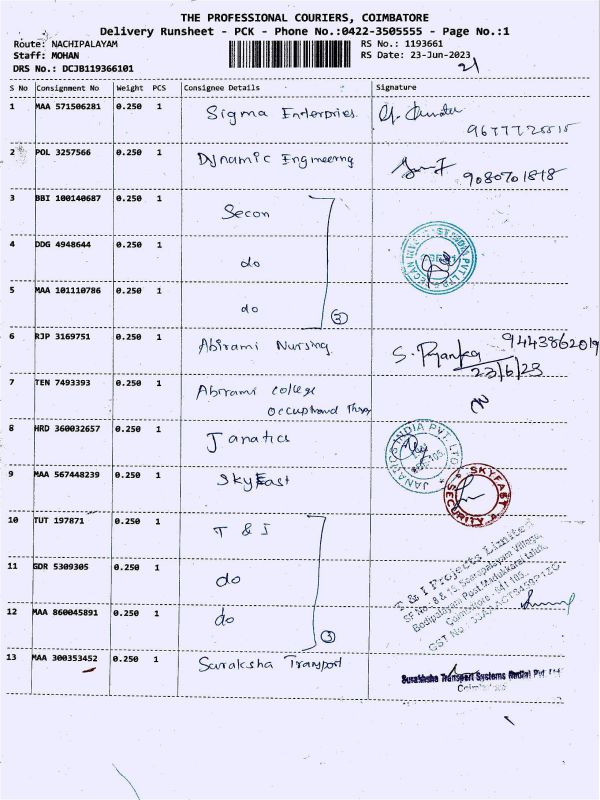 THE PROFESSIONAL COURIERS, COIMBATORE
Delivery Runsheet - PCK - Phone No.:0422-3505555 - Page No.:1
Route: NACHIPALAYAM
RS No.: 1193661
Staff: MOHAN
RS Date: 23-Jun-2023
DRS No.: DCJB119366101
21
S No Consignment No Weight PCS Consignee Details Signature
1 MAA 571506281 0.250 1 Sigma Enterpries
2 POL 3257566 0.250 1 Dynamic Engineering
9080701818
3 BBI 100140687 0.250 1 Secon
4 DDG 4948644 0.250 1 do
5 MAA 101110786 0.250 1 do
3
6 RJP 3169751 0.250 1 Abirami Nursing
9443862019
S. Pryanka
23/6/23
7 TEN 7493393 0.250 1 Abirami college
8 HRD 360032657 0.250 1 Janatics
JANATICS INDIA PVT. LTD.
9 MAA 567448239 0.250 1 SkyFast
SKYFAST SECURITY
10 TUT 197871 0.250 1 T & I
11 GDR 5309305 0.250 1 do
12 MAA 860045891 0.250 1 do
3
T & I Projects Limited
Coimbatore - 641 105.
13 MAA 300353452 0.250 1 Suraksha Transport
Surakhsha Transport Systems Radial Pvt Ltd
Coimbatore